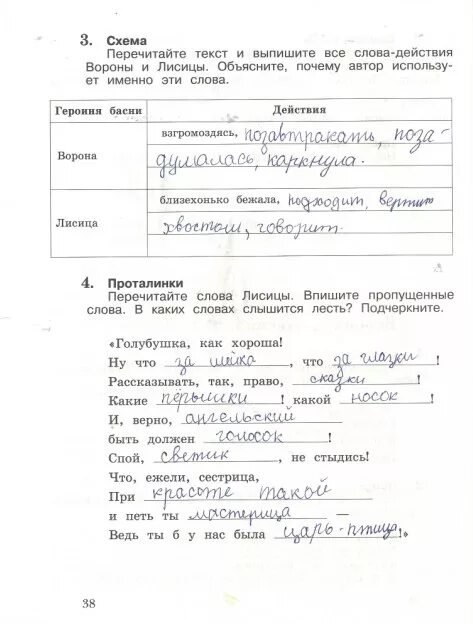 3. Схема
Перечитайте текст и выпишите все слова-действия
Вороны и Лисицы. Объясните, почему автор использу-
ет именно эти слова.
Героиня басни Действия
взгромоздясь, позавтракать, поза-
Ворона
думалась, каркнула.
близехонько бежала, подходит, вертит
Лисица
хвостом, говорит.
4. Проталинки
Перечитайте слова Лисицы. Впишите пропущенные
слова. В каких словах слышится лесть? Подчеркните.
«Голубушка, как хороша!
Ну что за шейка, что за глазки!
Рассказывать, так, право, сказки!
Какие перышки! какой носок!
И, верно, ангельский
быть должен голосок!
Спой, светик, не стыдись!
Что, ежели, сестрица,
При красоте такой
и петь ты мастерица —
Ведь ты б у нас была царь-птица!»
38